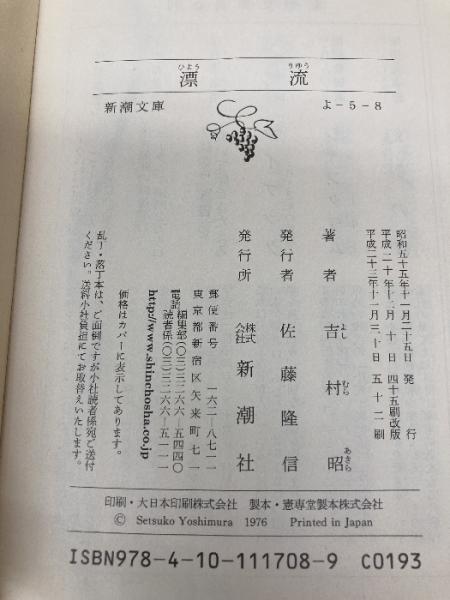 漂流
ひょう りゅう
新潮文庫
よ-5-8
昭和五十五年十一月二十五日 発行
平成二十年十二月十日 四十五刷改版
平成二十三年十一月三十日 五十二刷
著者 吉村昭
よし むら あきら
発行者 佐藤隆信
発行所 株式会社 新潮社
郵便番号 一六二-八七一一
東京都新宿区矢来町七一
電話 編集部(〇三)三二六六-五四四〇
読者係(〇三)三二六六-五一一一
http://www.shinchosha.co.jp
価格はカバーに表示してあります。
乱丁・落丁本は、ご面倒ですが小社読者係宛ご送付
ください。送料小社負担にてお取替えいたします。
印刷・大日本印刷株式会社 製本・憲専堂製本株式会社
© Setsuko Yoshimura 1976 Printed in Japan
ISBN978-4-10-111708-9 C0193